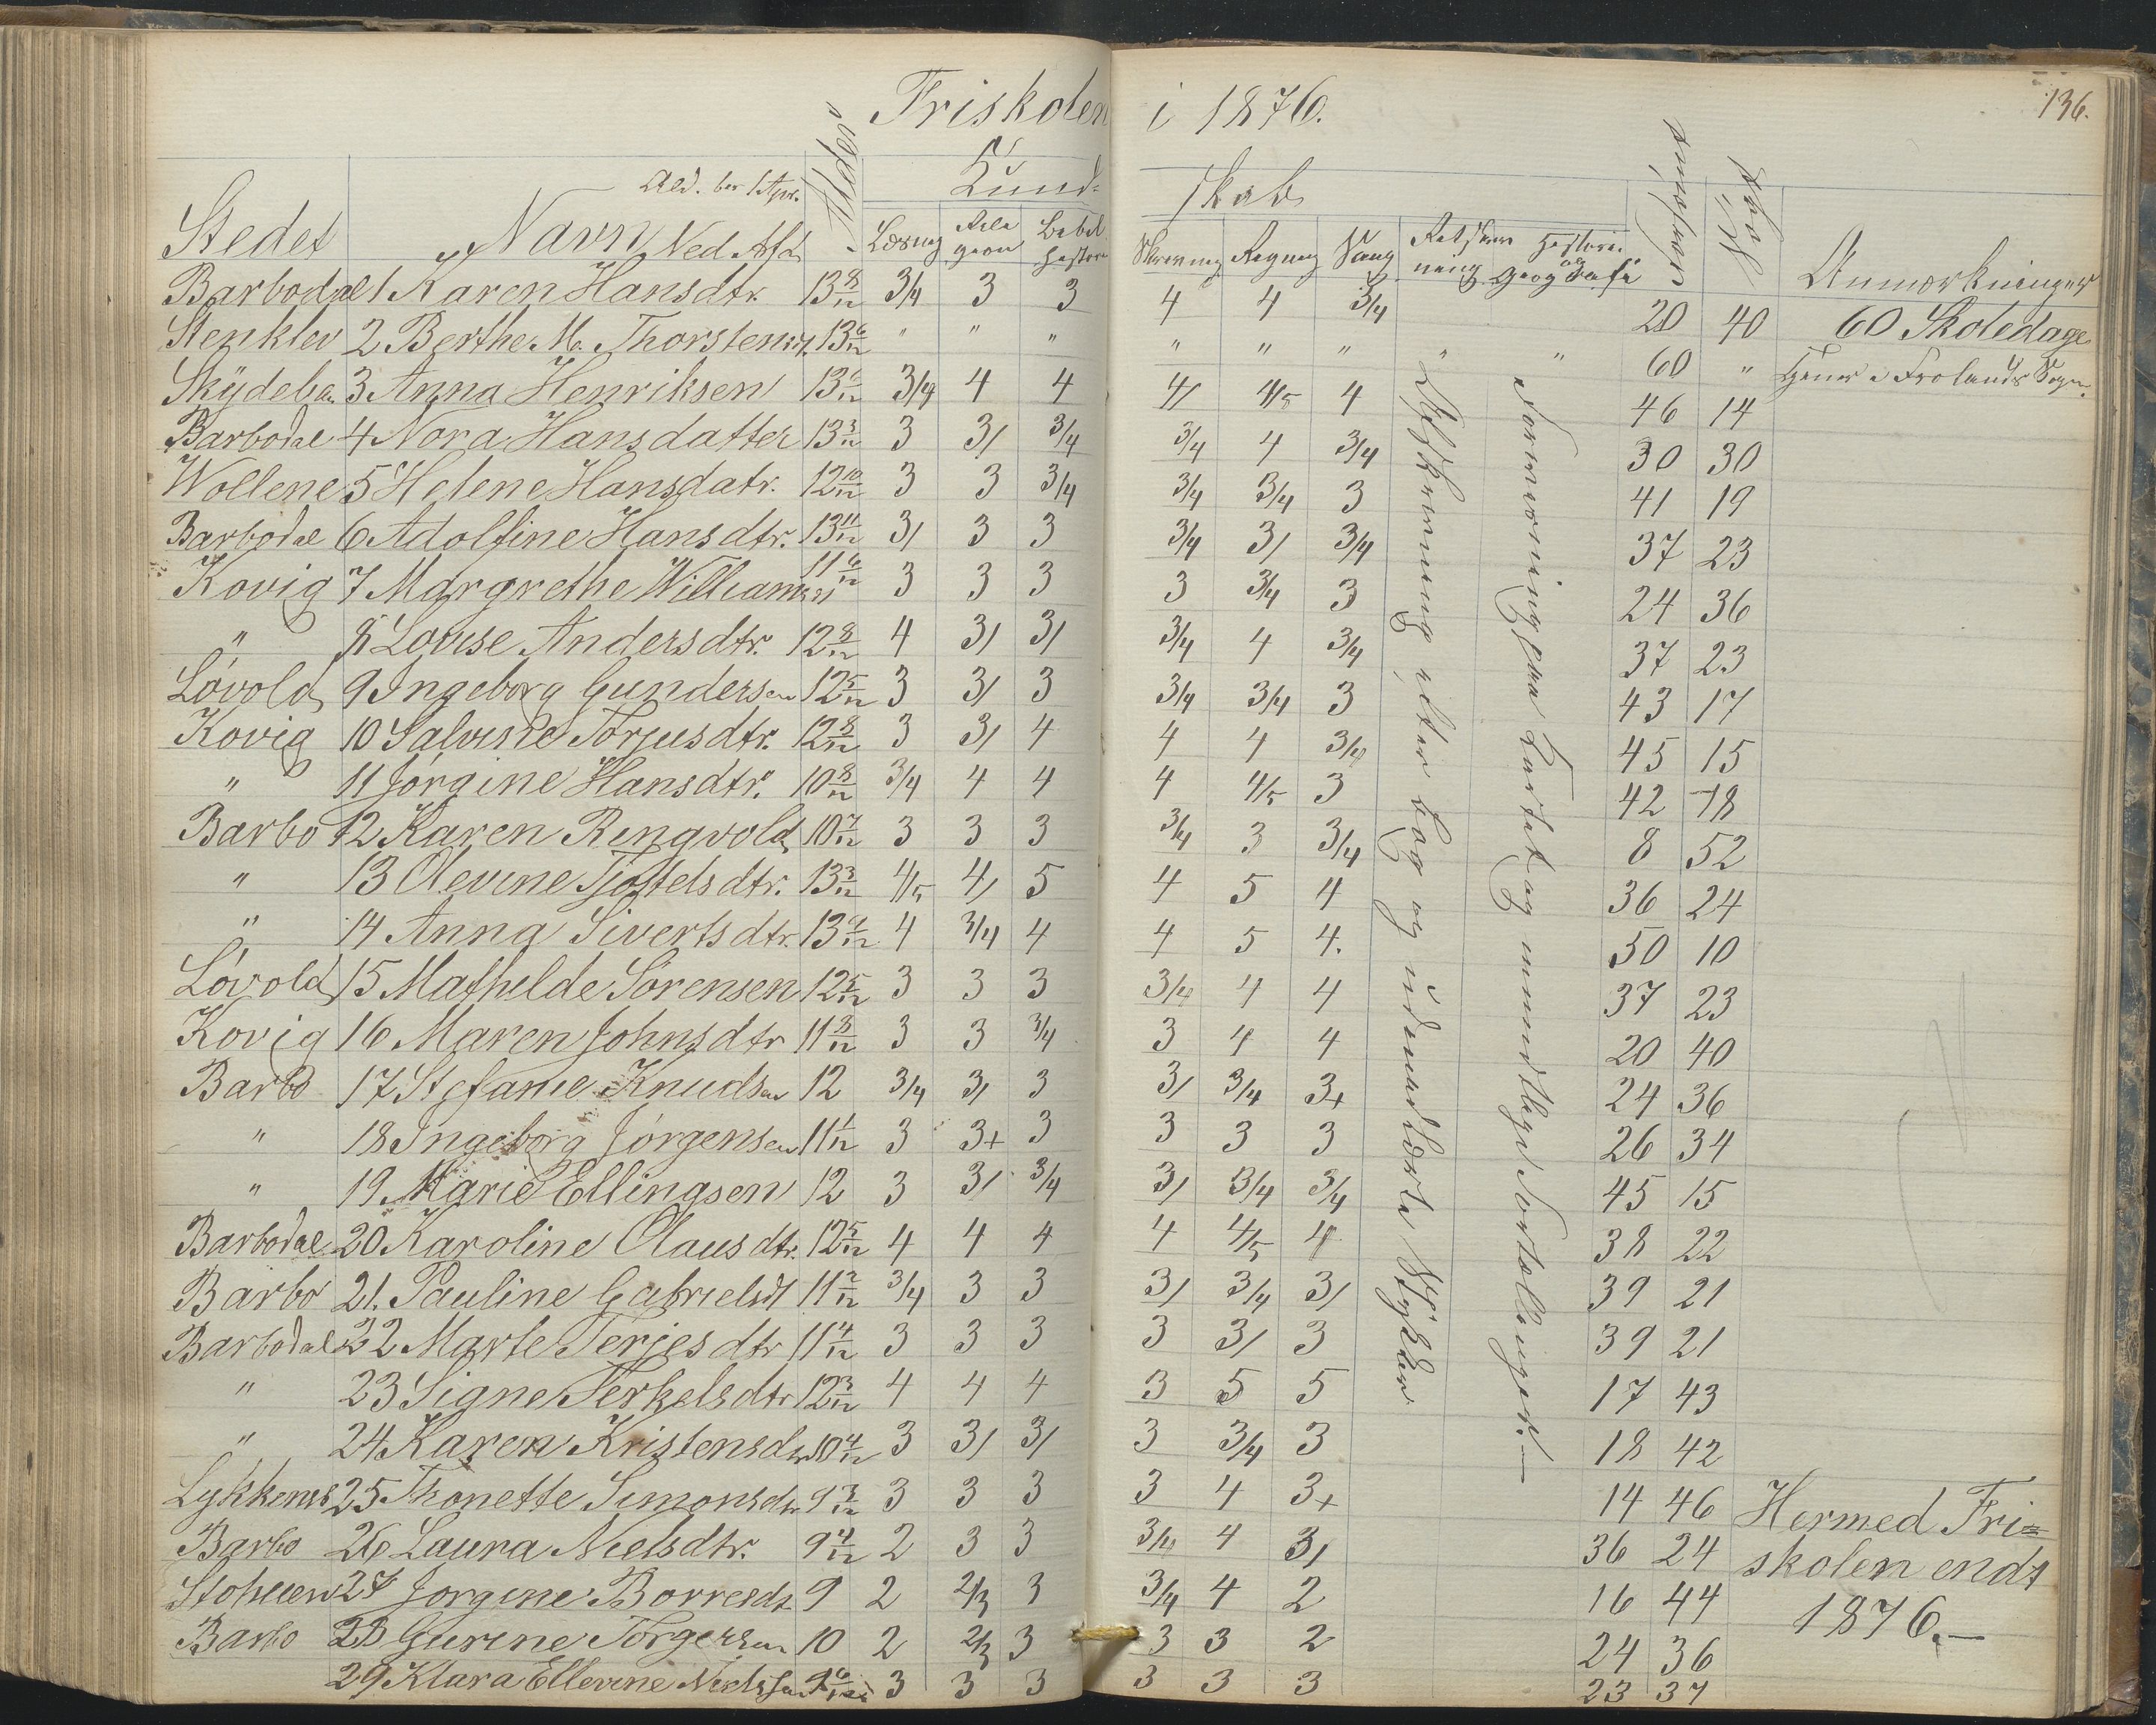 Friskolen i 1876.
136.
Ald. ber 1 Apr. Alder Kund- skab
Stedet Navn Ned. Afd. Læsning Reli gion Bibel historie Skrivning Regning Sang Retskriv ning Historie og Geografi forsømt Skolet Anmærkninger
Barbodal 1 Karen Hansdtr. 13 8/12 3/4 3 3 4 4 3/4 20 40 60 Skoledage
Stenklev 2 Berthe M. Thorstensdt. 13 6/12 " " " " " " " " 60 " Frolands Sogn.
3 Anna Henriksen 3/4 4 4 4/ 4/5 4 46 14
Barbodal 4 Nora Hansdatter 13 3/12 3 3/ 3/4 3/4 4 3/4 30 30
Wollene 5 Helene Hansdatr. 12 10/12 3 3 3/4 3/4 3/4 3 41 19
Barbodal 6 Adolfine Hansdtr. 13 11/12 3/ 3 3 3/4 3/ 3/4 37 23
Kovig 7 Margrethe Williamsen 11 6/12 3 3 3 3 3/4 3 24 36
" 8 Lovise Andersdtr. 12 8/12 4 3/ 3/ 3/4 4 3/4 37 23
Lövold 9 Ingeborg Gundersen 12 5/12 3 3/ 3 3/4 3/4 3 43 17
Kovig 10 Torjusdtr. 12 8/12 3 3/ 4 4 4 3/4 45 15
" 11 Jörgine Hansdtr. 10 8/12 3/4 4 4 4 4/5 3 42 18
Barbo 12 Karen Ringvold 10 7/12 3 3 3 3/4 3 3/4 8 52
" 13 Olevine Tjostelsdtr. 13 3/12 4/5 4/ 5 4 5 4 36 24
" 14 Anna Sivertsdtr. 4 3/4 4 4 5 4. 50 10
Lövold 15 Mathilde Sörensen 12 5/12 3 3 3 3/4 4 4 37 23
Kovig 16 Maren Johnsdtr 11 3/12 3 3 3/4 3 4 4 20 40
Barbo 17 Stefanie Knudsen 12 3/4 3/ 3 3/ 3/4 3+ 24 36
" 18 Ingeborg Jörgensen 11 1/12 3 3+ 3 3 3 3 26 34
" 19. Marie Ellingsen 12 3 3/ 3/4 3/ 3/4 3/4 45 15
Barbodal 20 Karoline Olausdtr. 12 5/12 4 4 4 4 4/5 4 38 22
Barbo 21. Pauline Gabrielsdt 11 2/12 3/4 3 3 3/ 3/4 3/ 39 21
Barbodal 22 Marte Terjesdtr 11 4/12 3 3 3 3 3/ 3 39 21
" 23 Signe Terkelsdtr 12 3/12 4 4 4 3 5 5 17 43
" 24 Karen Kristensdtr 10 4/12 3 3/ 3/ 3 3/4 3 18 42
25 Thonette Simonsdtr 9 3/12 3 3 3 3 4 3+ 14 46 Hermed Fri=
Barbo 26 Laura Nielsdtr. 9 4/12 2 3 3 3/4 4 3/ 36 24 skolen endt
27 Jorgine Borresdt 9 2 2/3 3 3/4 4 2 16 44 1876.—
Barbo 28 Gurine Torgersen 10 2 2/3 3 3 3 2 24 36
29 Klara Ellevine Nielsen 9 6/12 3 3 3 3 3 3 23 37
Afskrivning efter Bog og udenadlærte Stykker
Forevisning paa Kartet og mundtlige Fortællinger.—